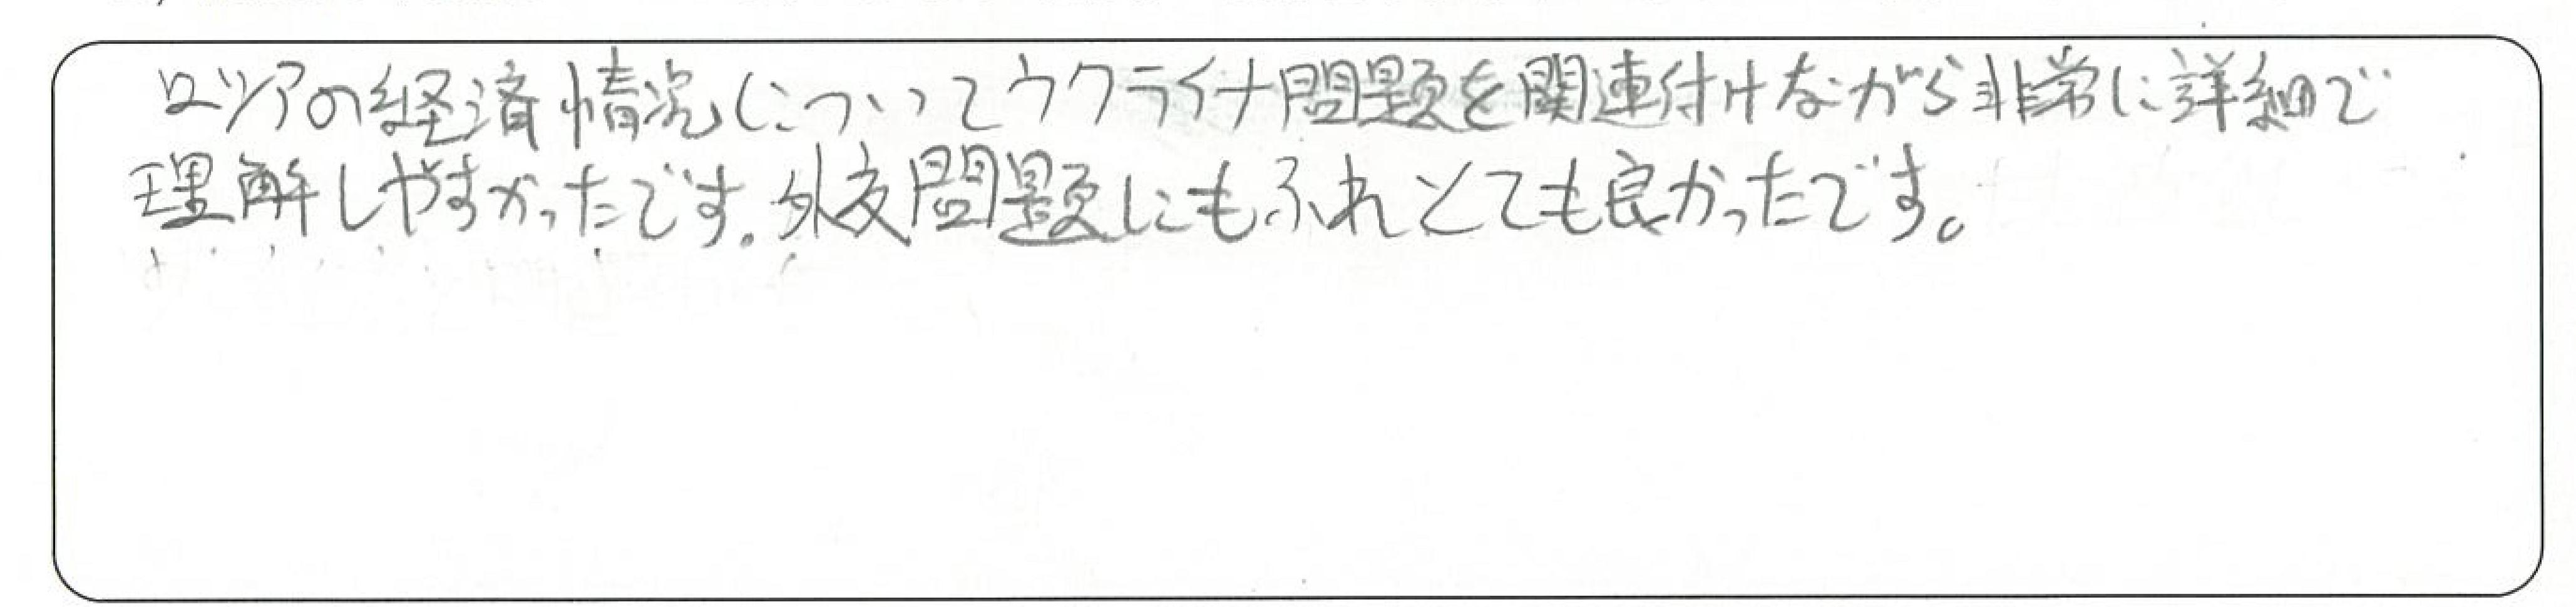 ロシアの経済情況についてウクライナ問題を関連付けながら非常に詳細で
理解しやすかったです。外交問題にもふれとても良かったです。